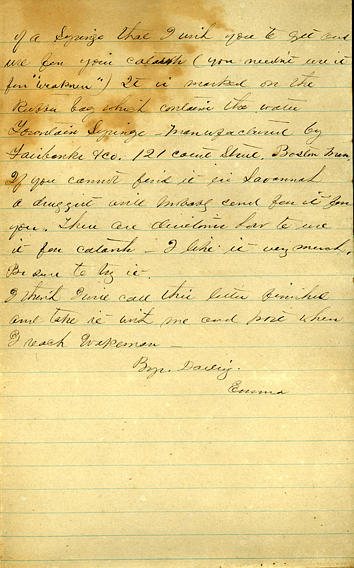 of a Syringe that I wish you to get and
use for your catarrh (you needn't use it
for "weakness") It is marked on the
Rubber bag which contains the water
Fountain Syringe - Manufactured by
Fairbanks & Co. 121 Court Street, Boston Mass,
If you cannot find it in Savannah
a druggist will probably send for it for
you. There are directions how to use
it for catarrh - I like it very much.
Be sure to try it.
I think I will call this letter finished
and take it with me and post when
I reach Wakeman -
Bye. Darling.
Emma